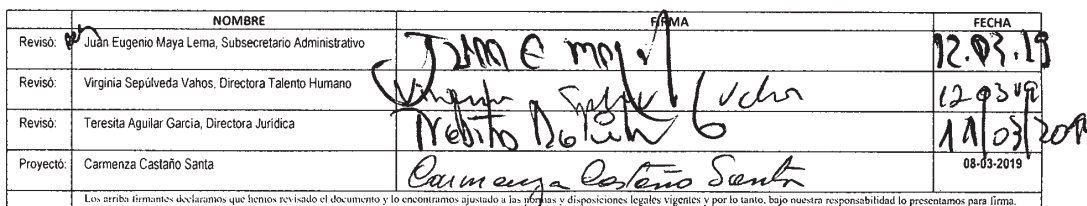 NOMBRE FIRMA FECHA
Revisó: Juan Eugenio Maya Lema, Subsecretario Administrativo Juan E Maya 12.03.19
Revisó: Virginia Sepúlveda Vahos, Directora Talento Humano Virginia 12 03 19
Revisó: Teresita Aguilar Garcia, Directora Jurídica 11/03/2019
Proyectó: Carmenza Castaño Santa Carmenza Castaño Santa 08-03-2019
Los arriba firmantes declaramos que hemos revisado el documento y lo encontramos ajustado a las normas y disposiciones legales vigentes y por lo tanto, bajo nuestra responsabilidad lo presentamos para firma.